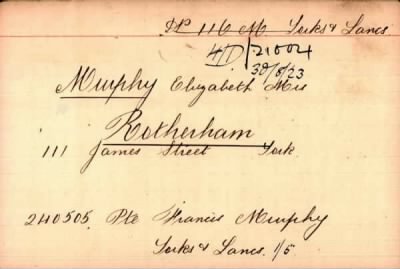 DP 116 M. Yorks & Lancs
4/D/21004
30/8/23
Murphy Elizabeth Mrs
Rotherham
111 James Street York
240505 Pte Francis Murphy
Yorks & Lancs. 1/5